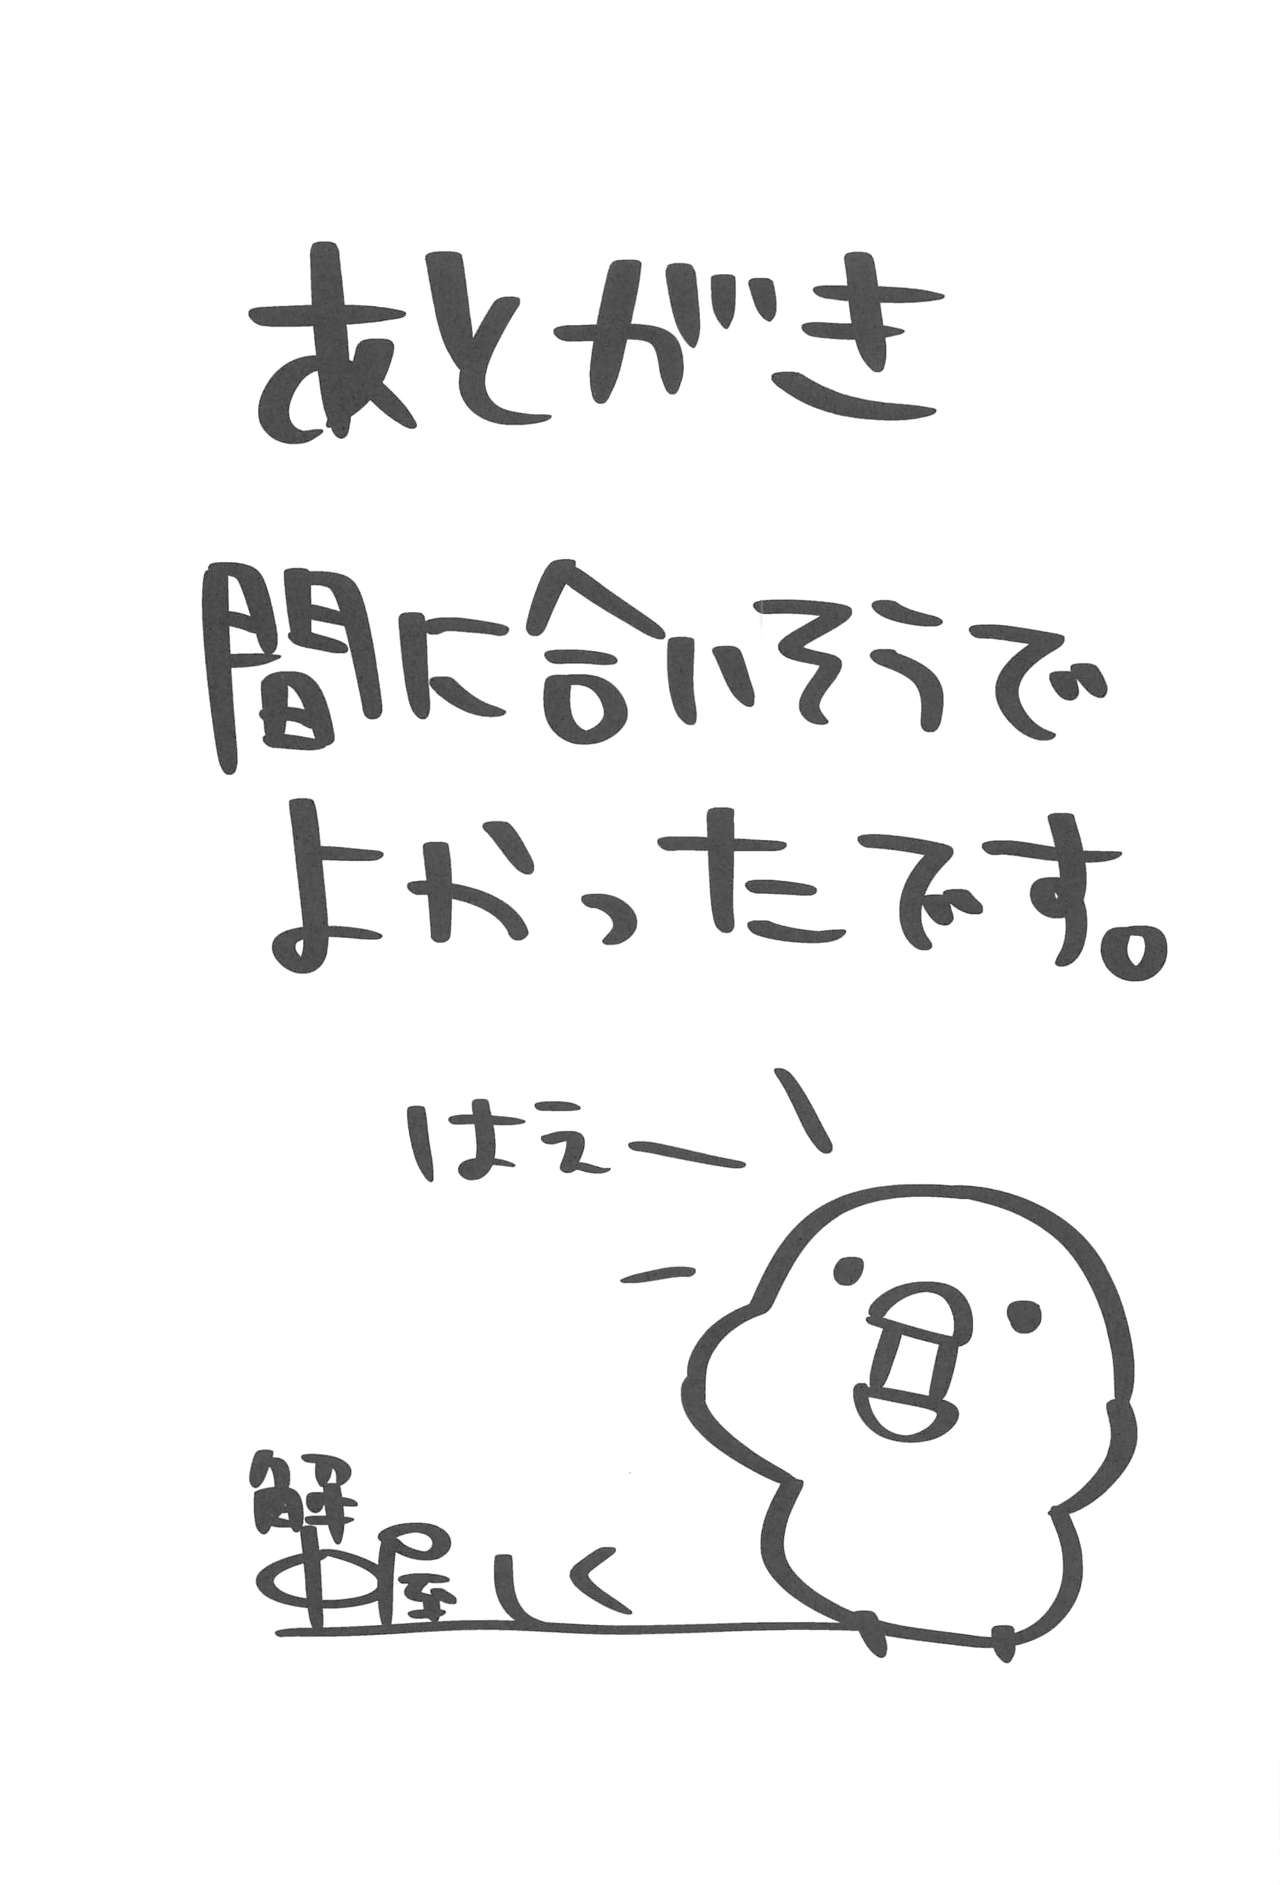 あとがき
間に合いそうで
よかったです。
はえー